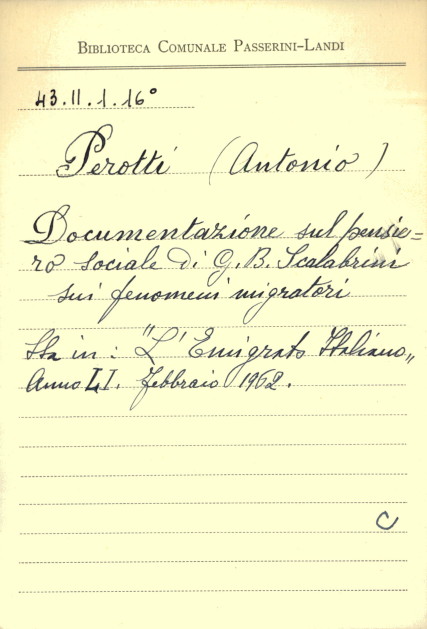 BIBLIOTECA COMUNALE PASSERINI-LANDI
43.II.1.16°
Perotti (Antonio)
Documentazione sul pensie=
ro sociale di G. B. Scalabrini
sui fenomeni migratori
Sta in: "L'Emigrato Italiano„
Anno LI. febbraio 1962.
C